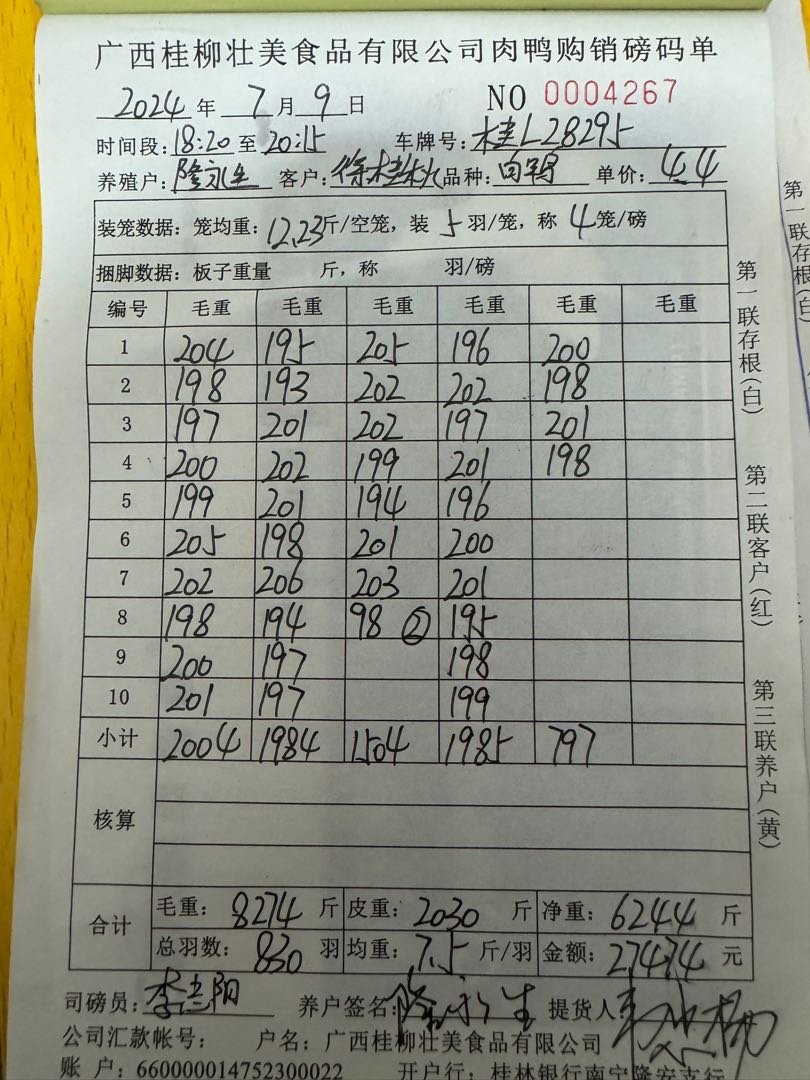 广西桂柳壮美食品有限公司肉鸭购销磅码单
2024 年 7 月 9 日 NO 0004267
时间段: 18:20 至 20:15 车牌号: 桂L28295
养殖户: 隆永生 客户: 徐桂秋 品种: 白鸭 单价: 4.4
装笼数据: 笼均重: 12.23斤/空笼, 装 5 羽/笼, 称 4 笼/磅
捆脚数据: 板子重量 斤, 称 羽/磅
编号 毛重 毛重 毛重 毛重 毛重 毛重
1 204 195 205 196 200
2 198 193 202 202 198
3 197 201 202 197 201
4 200 202 199 201 198
5 199 201 194 196
6 205 198 201 200
7 202 206 203 201
8 198 194 98 ② 195
9 200 197 198
10 201 197 199
小计 2004 1984 1504 1985 797
核算
合计
毛重: 8274 斤 皮重: 2030 斤 净重: 6244 斤
总羽数: 830 羽 均重: 7.5 斤/羽 金额: 27474 元
司磅员: 阳 养户签名: 隆永生 提货人
公司汇款帐号: 户名: 广西桂柳壮美食品有限公司
账 户: 660000014752300022 开户行: 桂林银行南宁隆安支行
第一联存根(白)
第二联客户(红)
第三联养户(黄)
第一联存根(白)